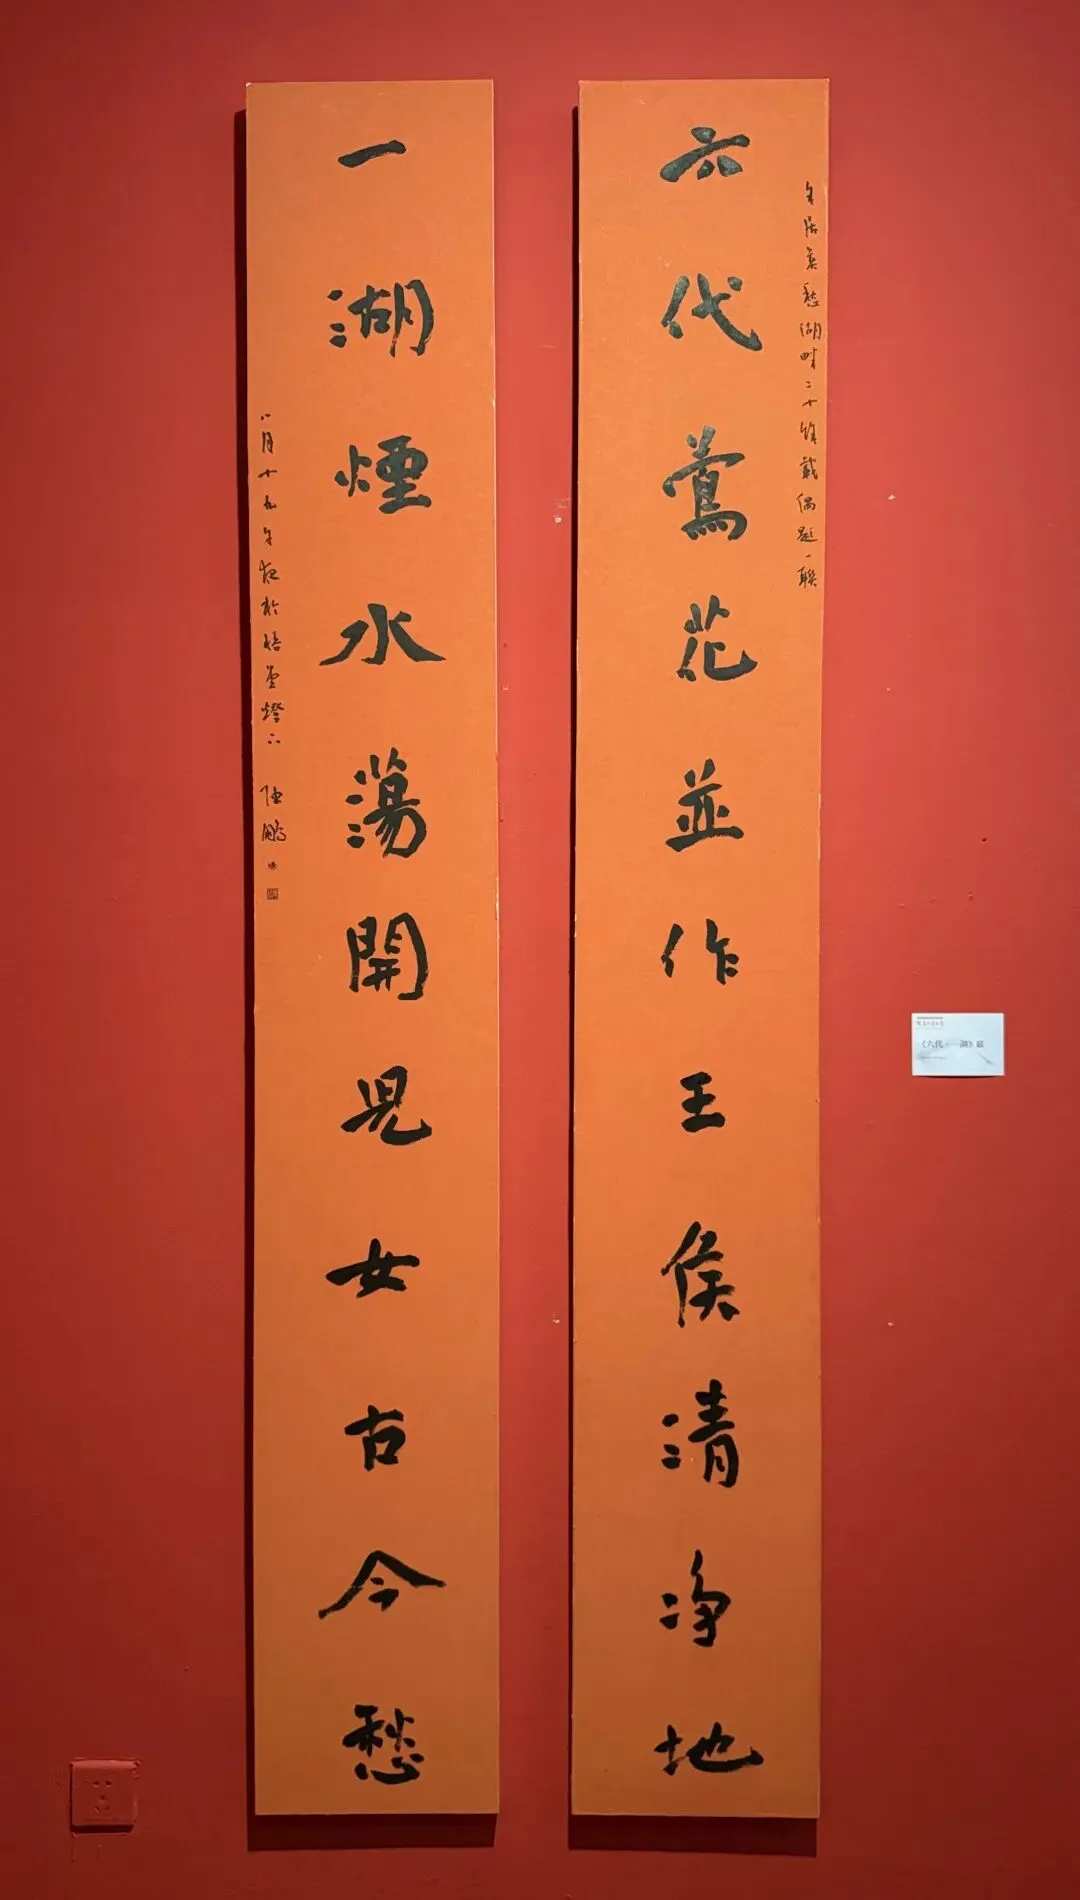 六代鶯花並作王侯清净地
余居莫愁湖畔二十餘載偶題一聯
一湖煙水蕩開兒女古今愁
八月十九午夜於悟堂燈下 陸鵬
《六代·一湖》联